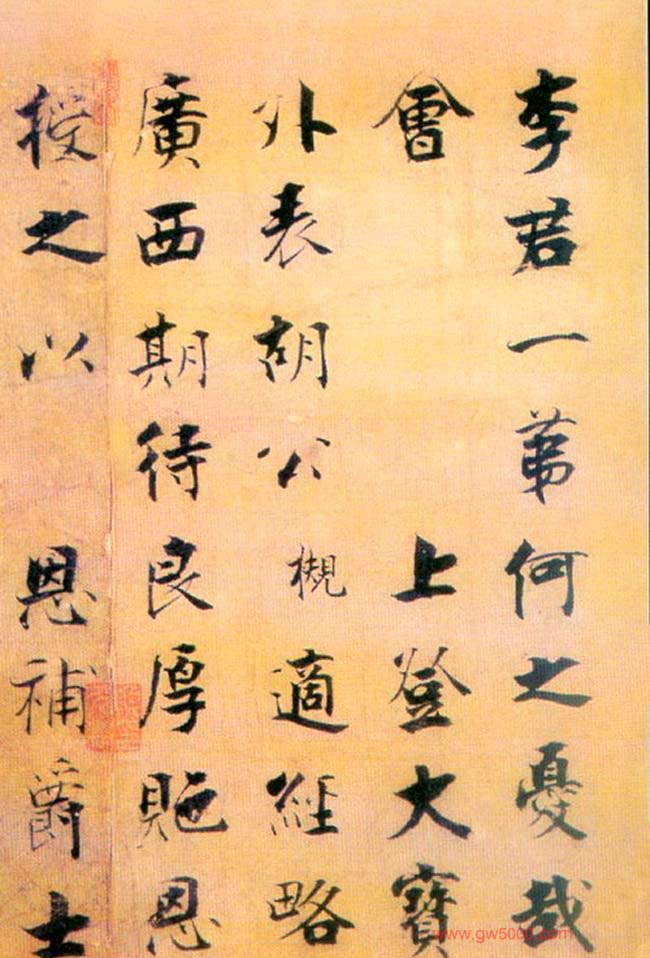 李君一第何之憂哉
會 上登大寶
外表胡公槻適經略
廣西期待良厚貤恩
授之以 恩補爵士